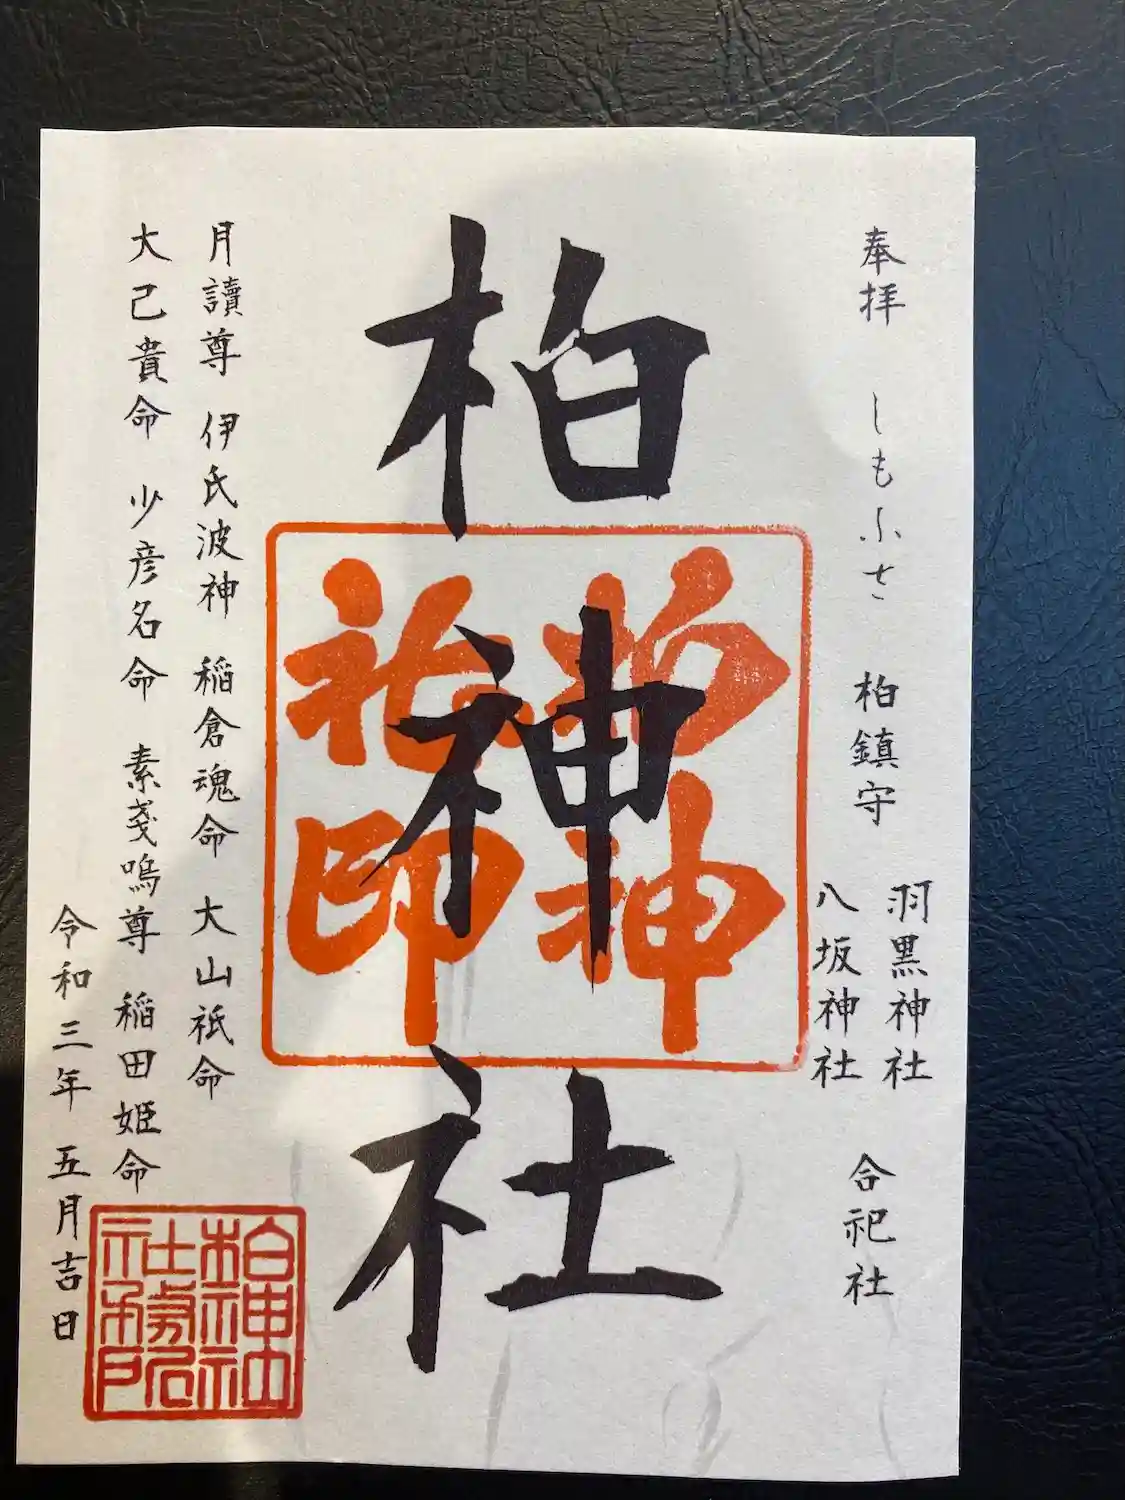 奉拝 しもふさ 柏鎮守
羽黒神社
八坂神社
合祀社
柏神社
柏神社印
月讀尊 伊氐波神 稲倉魂命 大山祇命
大己貴命 少彦名命 素戔嗚尊 稲田姫命
令和三年 五月吉日
柏神社
社務所